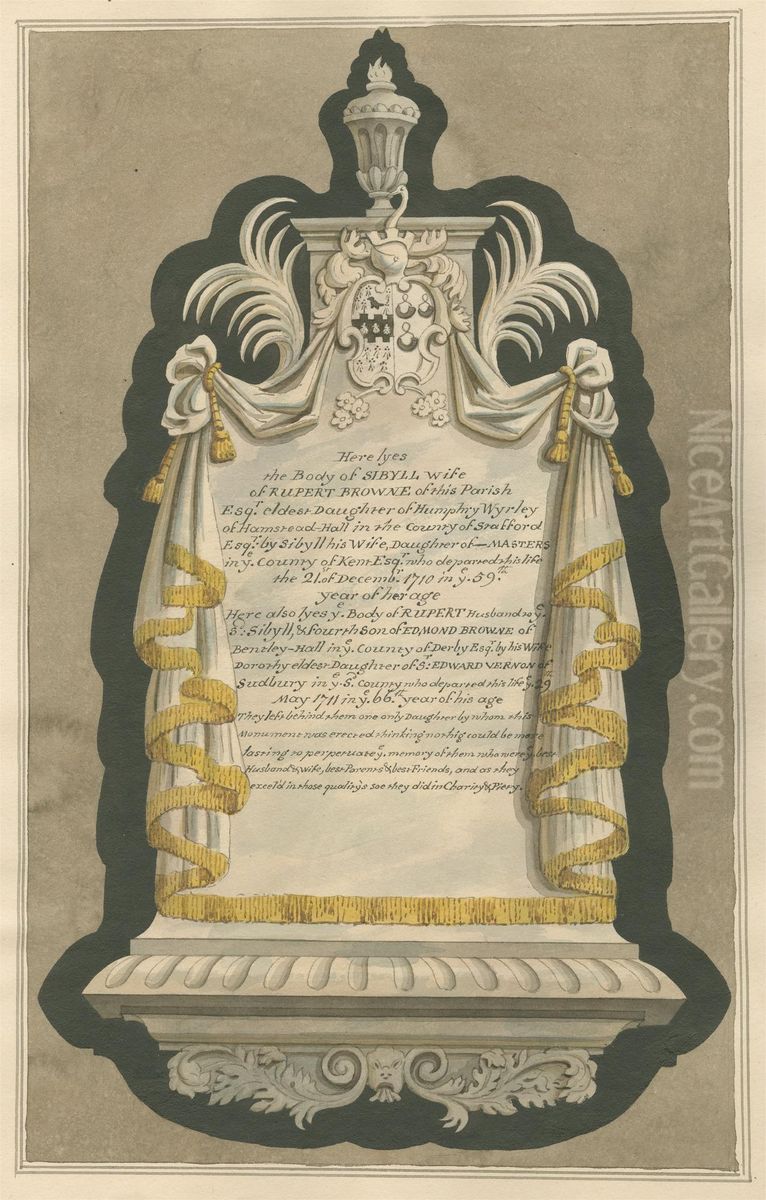 Here lyes
the Body of SIBYLL Wife
of RUPERT BROWNE of this Parish
Esqr. eldest Daughter of Humphry Wyrley
of Hamstead-Hall in the County of Stafford
Esqr. by Sibyll his Wife, Daughter of — MASTERS
in ye. County of Kent Esqr. who departed this life
the 21st. of Decembr. 1710 in ye. 59th.
year of her age
Here also lyes ye. Body of RUPERT Husband to ye.
Sd. Sibyll, & fourth Son of EDMOND BROWNE of
Bentley-Hall in ye. County of Derby Esqr. by his Wife
Dorothy eldest Daughter of Sr. EDWARD VERNON of
Sudbury in ye. Sd. County who departed this life ye. 29th
May 1711 in ye. 66th. year of his age
They left behind them one only Daughter by whom this
Monument was erected thinking nothig could be more
lasting to perpetuate ye. memory of them who were ye. best
Husband & Wife, best Parents & best Friends, and as they
excel'd in those quality's soe they did in Charity & Piety.
NiceArtGallery.com